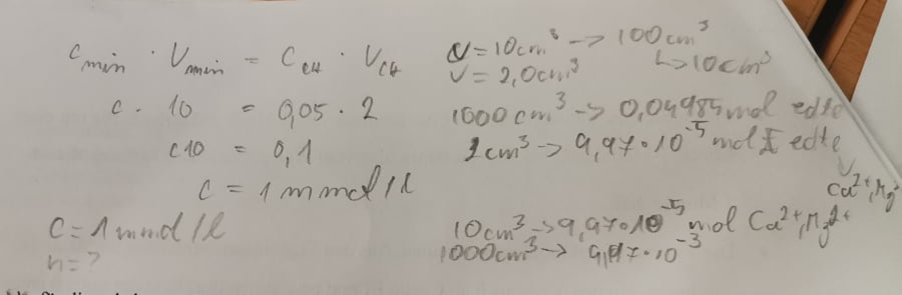 c min · V min = C CH · V CH
c · 10 = 0,05 · 2
c10 = 0,1
c = 1 mmol/l
C = 1 mmol/l
n = ?
V = 10cm³ -> 100cm³
↳ 10cm³
V = 2,0cm³
1000cm³ -> 0,04985mol edte
2cm³ -> 9,97·10⁻⁵ mol edte
Ca²⁺, Mg²⁺
10cm³ -> 9,97·10⁻⁵ mol Ca²⁺, Mg²⁺
1000cm³ -> 9,97·10⁻³